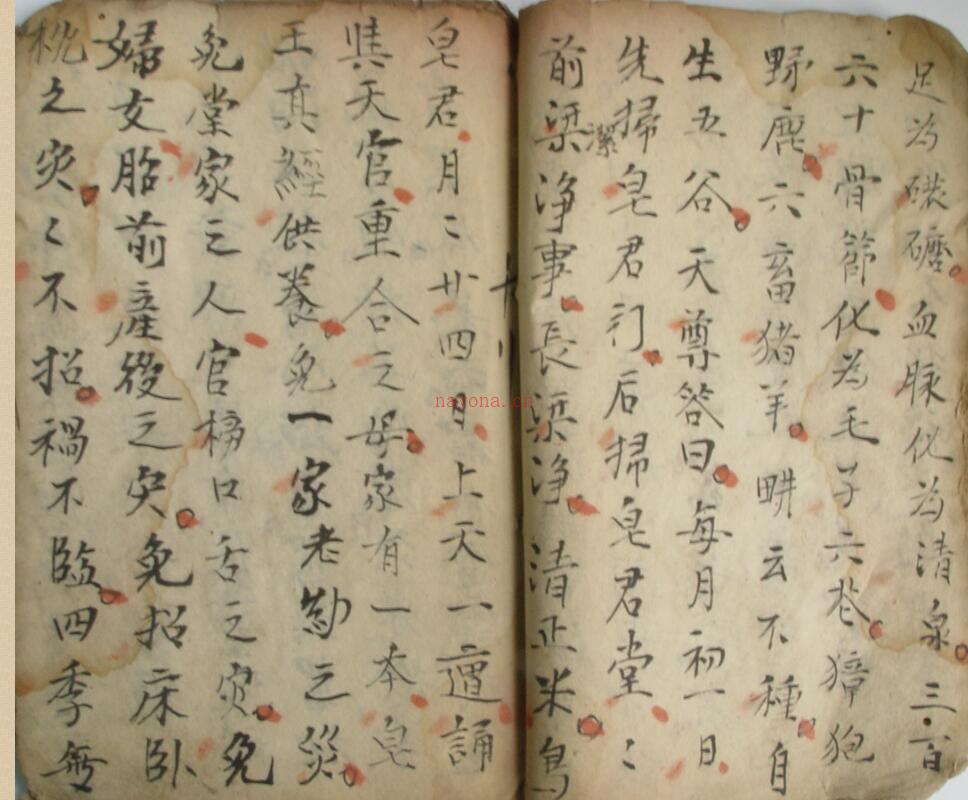 足為磉磨血脉化為清泉三百
六十骨節化為毛子六苍獐狍
野鹿六畜猪羊畊云不種自
生五谷天尊答曰每月初一日
先掃皂君门后掃皂君堂〻
前梁潔淨事長梁淨清正米烏
皂君月〻廿四日上天一遭誦
天官重合之母家有一本皂
王真經供養免一家老幼之災
免堂家之人官榜口舌之灾免
婦女胎前產後之灾免招床卧
枕之灾〻不招禍不臨四季無
nayona.cn